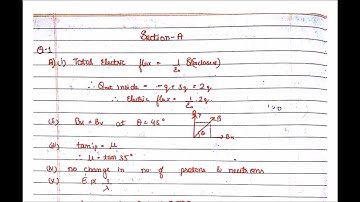 Section-A
Q-1
A) i) Total Electric flux = 1/ε₀ Q(enclosed)
∴ Qnet inside = -q + 3q = 2q
∴ Electric flux = 1/ε₀ 2q
(ii) Bv = BH at θ = 45°
BV B
θ BH
(iii) tan ip = μ
∴ μ = tan 35°
(iv) no change in no of protons & neutrons
(v) E ∝ 1/λ